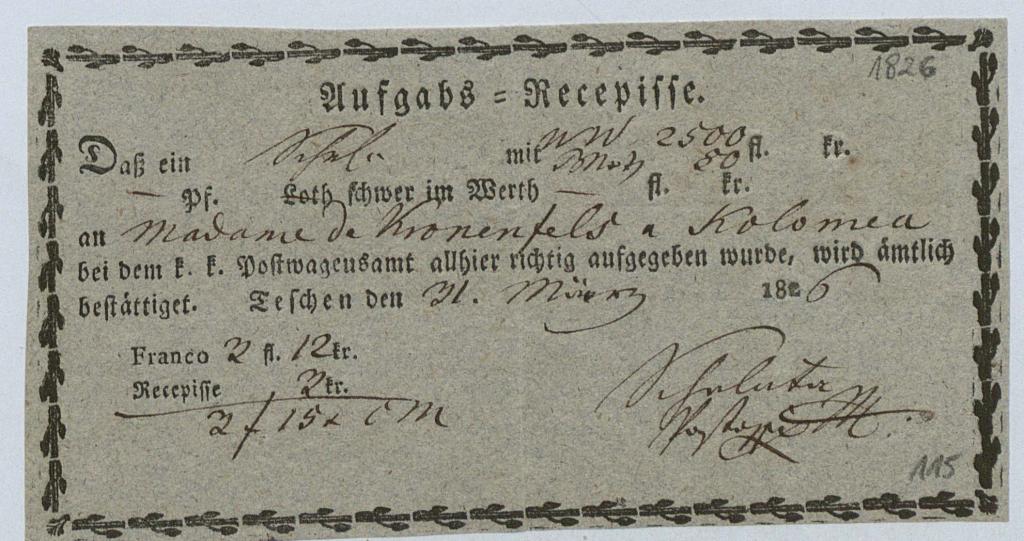 1826
Aufgabs = Recepisse.
Daß ein mit WW 2500 fl. kr.
50
— Pf. Loth schwer im Werth — fl. kr.
an Madame de Kronenfels a Kolomea
bei dem k. k. Postwagensamt allhier richtig aufgegeben wurde, wird ämtlich
bestättiget. Teschen den 31. März 1826
Franco 2 fl. 12 kr.
Recepisse 3 kr.
2 f 15 x CM
115